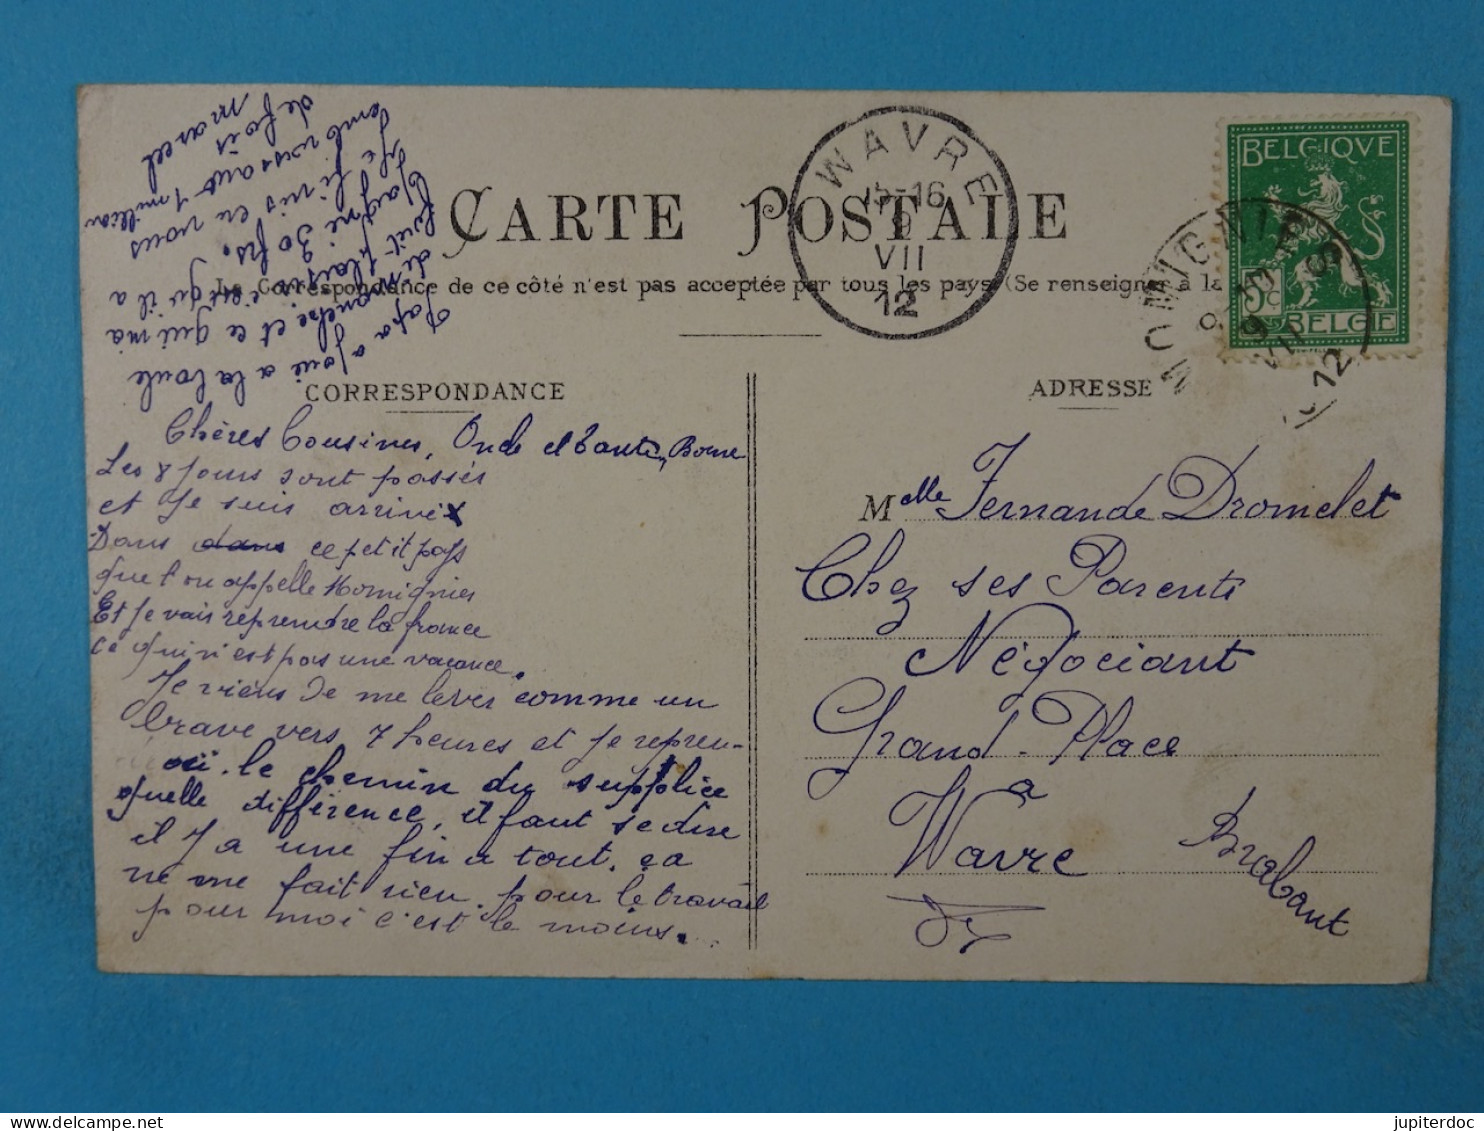 CARTE POSTALE
La Correspondance de ce côté n'est pas acceptée par tous les pays (Se renseigner à la
WAVRE
15-16
9
VII
12
BELGIQVE
5c
BELGIE
MOMIGNIES
9
VII
12
CORRESPONDANCE
Chères Cousines, Oncle et Tante, Bonne
Les 8 jours sont passés
et je suis arrivé
Dans dans ce petit pays
que l'on appelle Momignies
Et je vais reprendre la france
ce qui n'est pas une vacance.
Je viens de me lever comme un
brave vers 7 heures et je repren-
le chemin du supplice
quelle différence, il faut se dire
il y a une fin a tout, ça
ne me fait rien pour le travail
pour moi c'est le moins...
Papa a joué a la boule
dimanche et ce qui m'a
fait plaisir c'est qu'il a
gagné 30 frs.
Je finis en vous
1 million
de fois
Marcel
ADRESSE
Melle Fernande Dromelet
Chez ses Parents
Négociant
Grand-Place
à
Wavre
Brabant
jupiterdoc